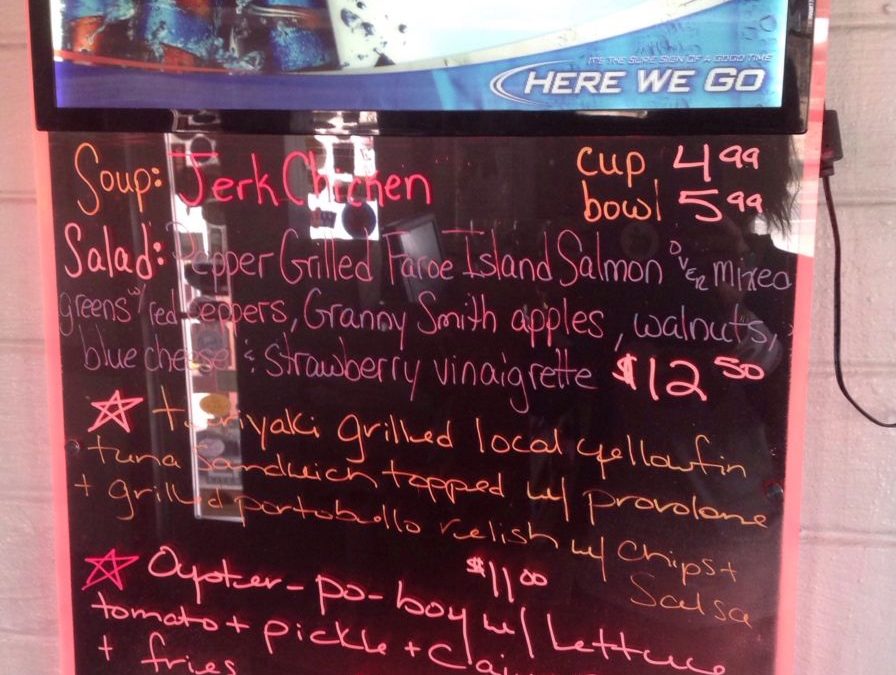 IT'S THE SURE SIGN OF A GOOD TIME
HERE WE GO
Soup: Jerk Chicken cup 4.99
bowl 5.99
Salad: Pepper Grilled Faroe Island Salmon over mixed
greens w/ red peppers, Granny Smith apples, walnuts,
blue cheese & Strawberry vinaigrette $12.50
☆ teriyaki grilled local yellowfin
tuna Sandwich topped w/ provolone
+ grilled portobello relish w/ chips +
Salsa
$11.00
☆ Oyster-po-boy w/ Lettuce
tomato + pickle +
+ fries